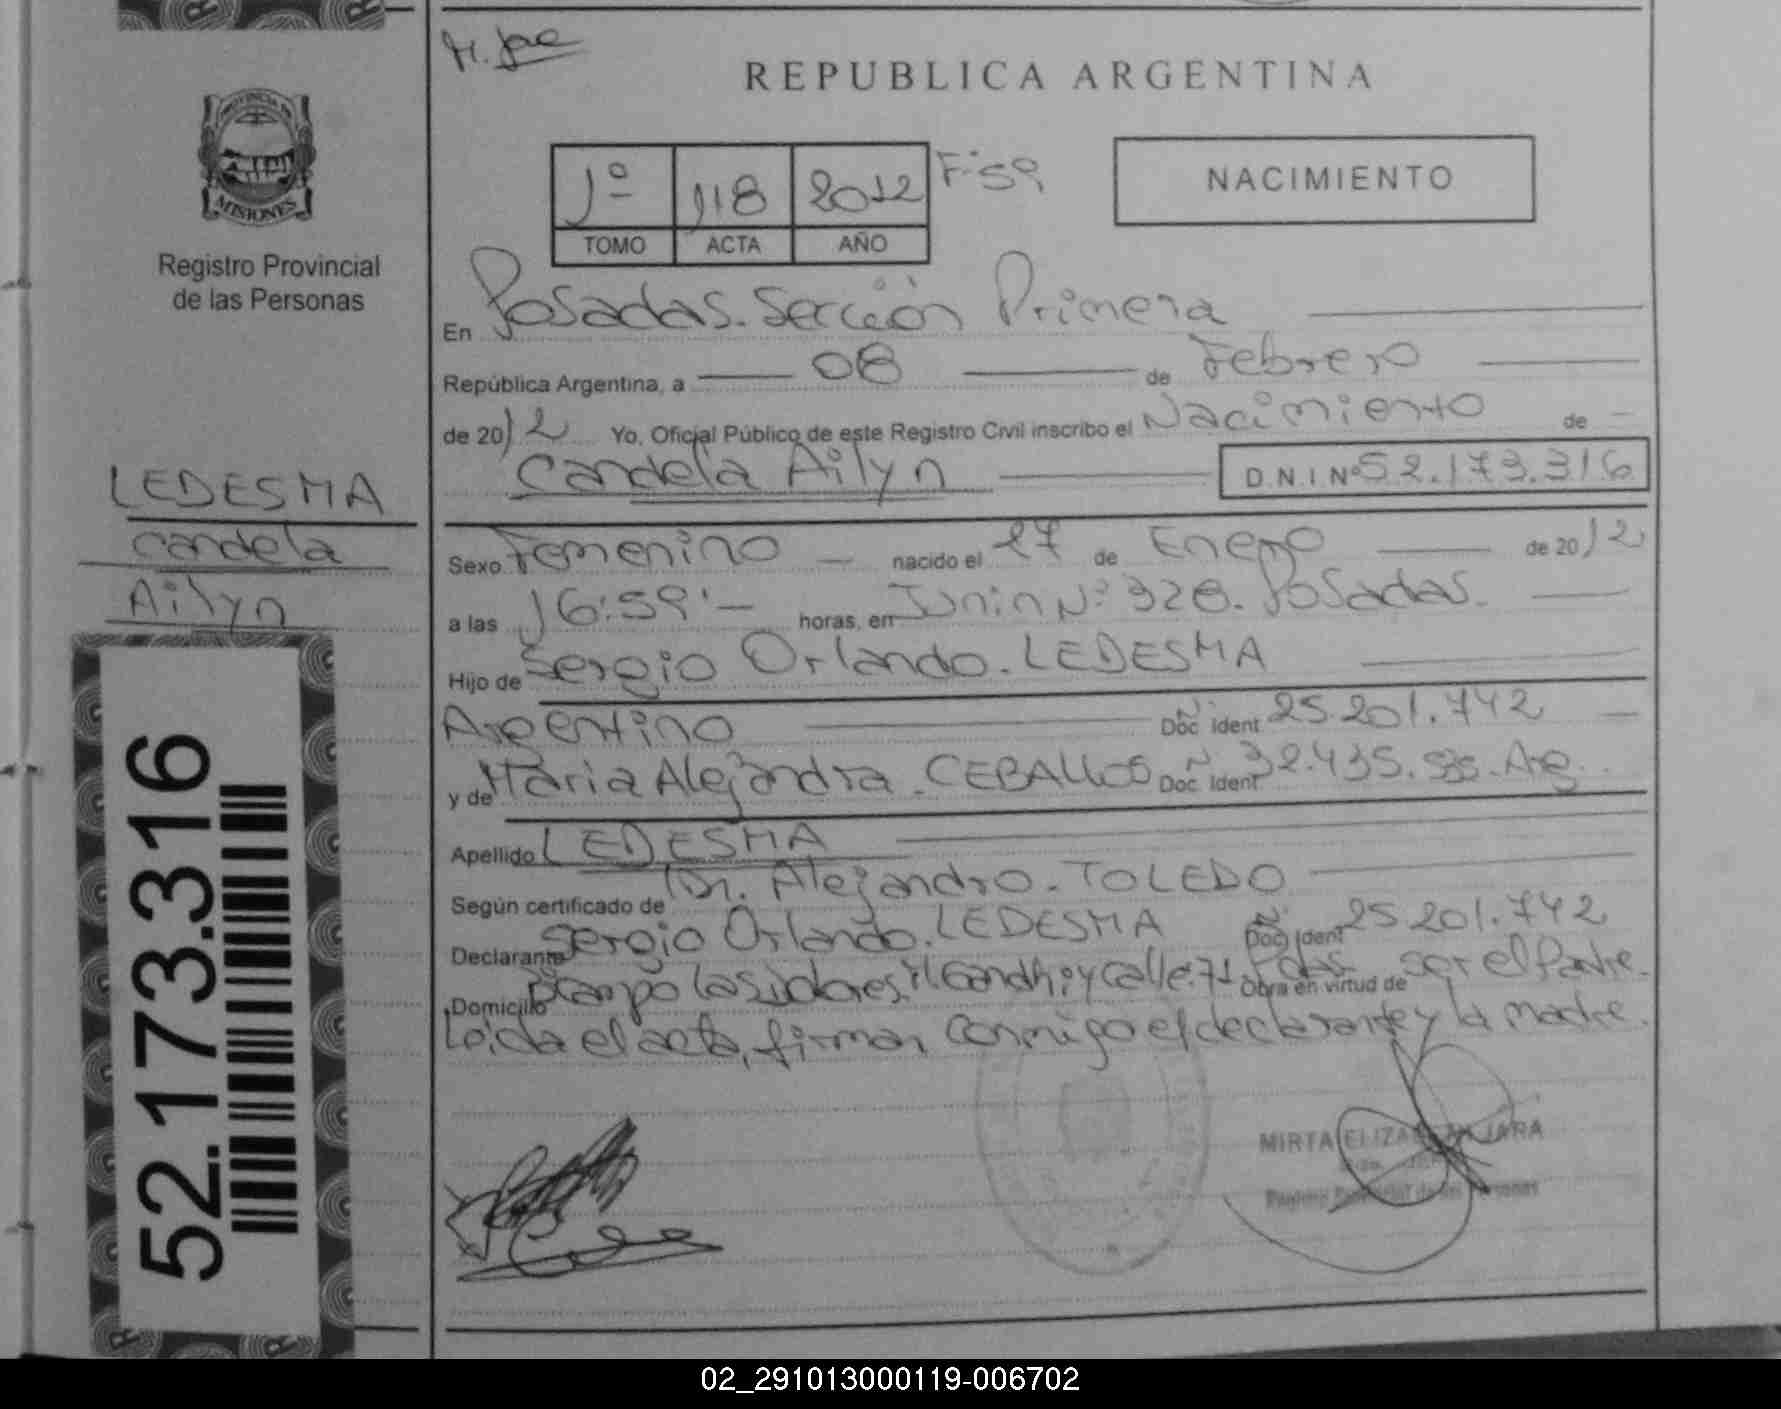 REPUBLICA ARGENTINA
PROVINCIA DE
MISIONES
Registro Provincial
de las Personas
1º 118 2012 Fº59
TOMO ACTA AÑO
NACIMIENTO
En Posadas. Sección Primera
República Argentina, a 08 de Febrero
de 2012 Yo, Oficial Público de este Registro Civil inscribo el Nacimiento de
Candela Ailyn D.N.I Nº 52.173.316
LEDESMA
Candela
Ailyn
Sexo Femenino nacido el 27 de Enero de 2012
a las 16:59' horas, en Junin Nº 328. Posadas.
Hijo de Sergio Orlando. LEDESMA
Argentino Nº Doc. Ident 25.201.742
y de Maria Alejandra. CEBALLOS Nº Doc. Ident 32.435. Arg.
Apellido LEDESMA
Según certificado de Dr. Alejandro. TOLEDO
Declarante Sergio Orlando. LEDESMA Nº Doc. Ident 25.201.742
Domicilio y Calle. 71 Pdas Obra en virtud de ser el Padre.
Leida el acta, firman conmigo el declarante y la madre.
MIRTA ELIZABETH JARA
Registro Provincial de las Personas
52.173.316
02_291013000119-006702